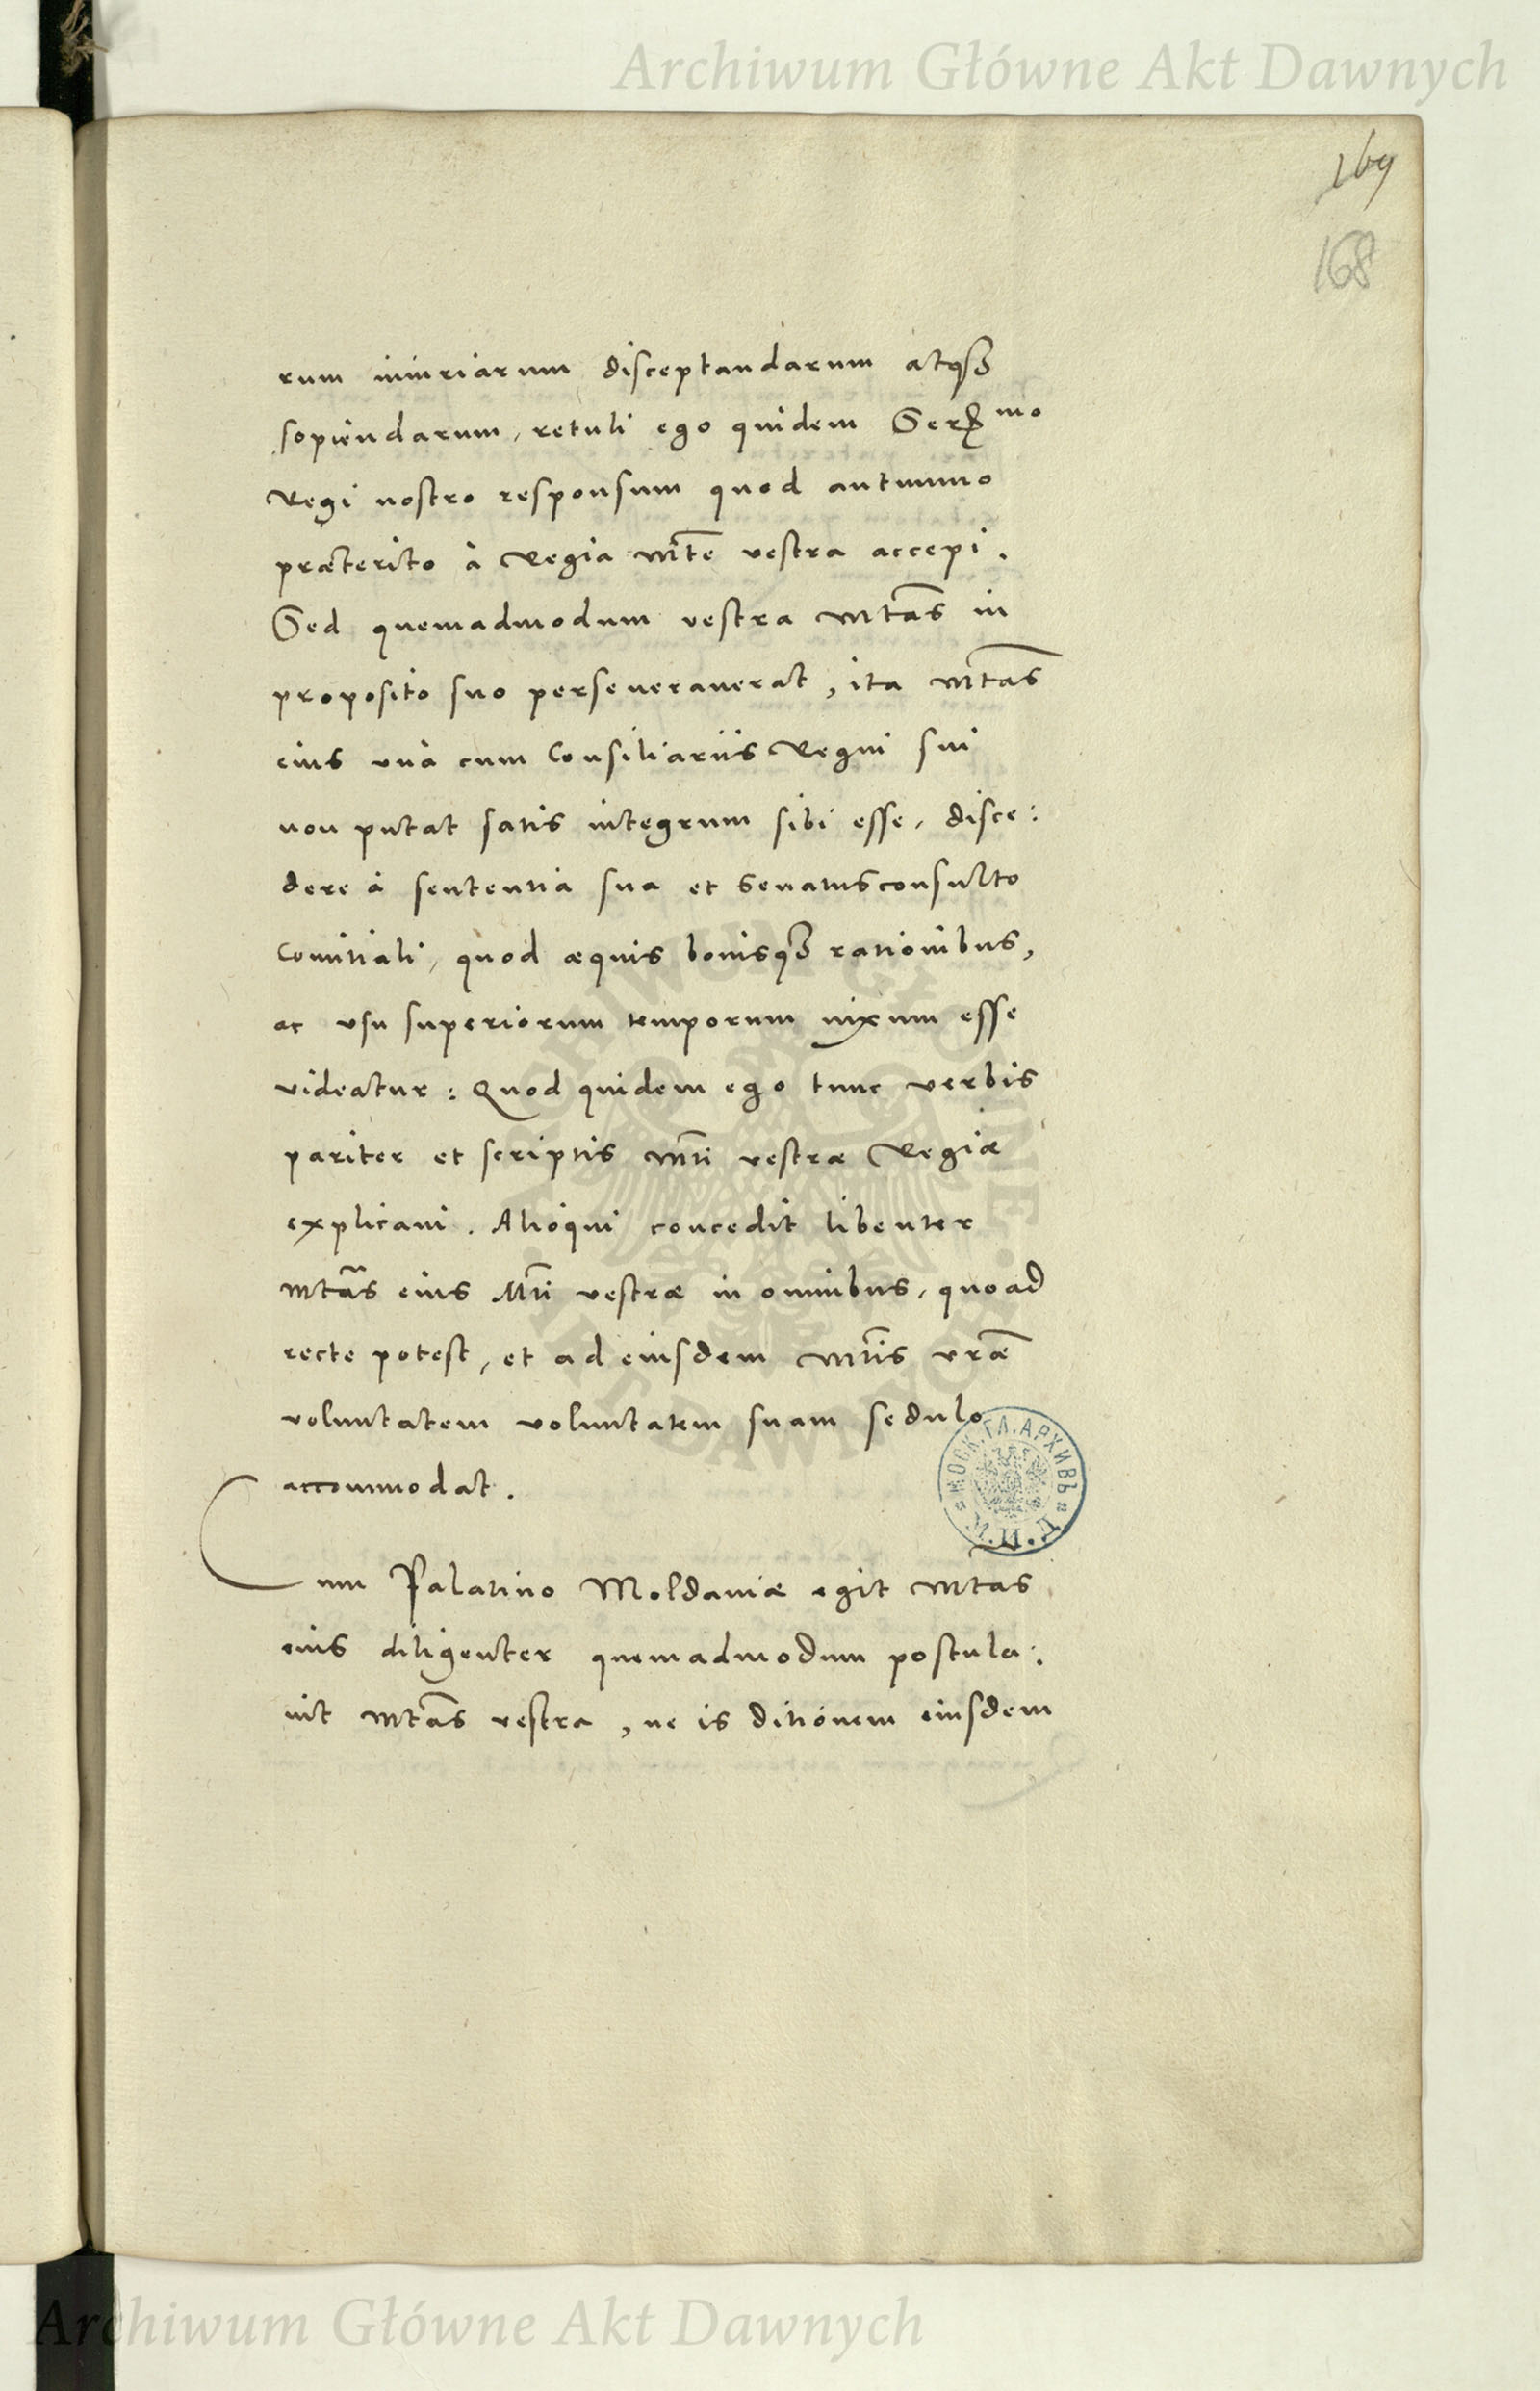 Archiwum Główne Akt Dawnych
169
168
rum iniuriarum disceptandarum atqȝ
sopiendarum, retuli ego quidem Serꝰmo
Regi nostro responsum quod autumno
præterito à Regia Mte vestra accepi.
Sed quemadmodum vestra Mtas in
proposito suo perseueranerat, ita Mtas
eius unà cum Consiliariis Regni sui
non putat satis integrum sibi esse, disce:
dere à sententia sua et Senatusconsulto
Comitiali, quod æquis bonisqȝ rationibus,
ac usu superiorum temporum nixum esse
videatur: Quod quidem ego tunc verbis
pariter et scriptis Mti vestræ Regiæ
explicaui. Alioqui concedit libenter
Mtas eius Mti vestræ in omnibus, quoad
recte potest, et ad eiusdem Mtis vræ
voluntatem voluntatem suam sedulo
accommodat.
МОСК. ГЛ. АРХИВЪ
Cum Palatino Moldauiæ egit Mtas
eius diligenter quemadmodum postula:
uit Mtas vestra, ne is ditionem eiusdem
Archiwum Główne Akt Dawnych